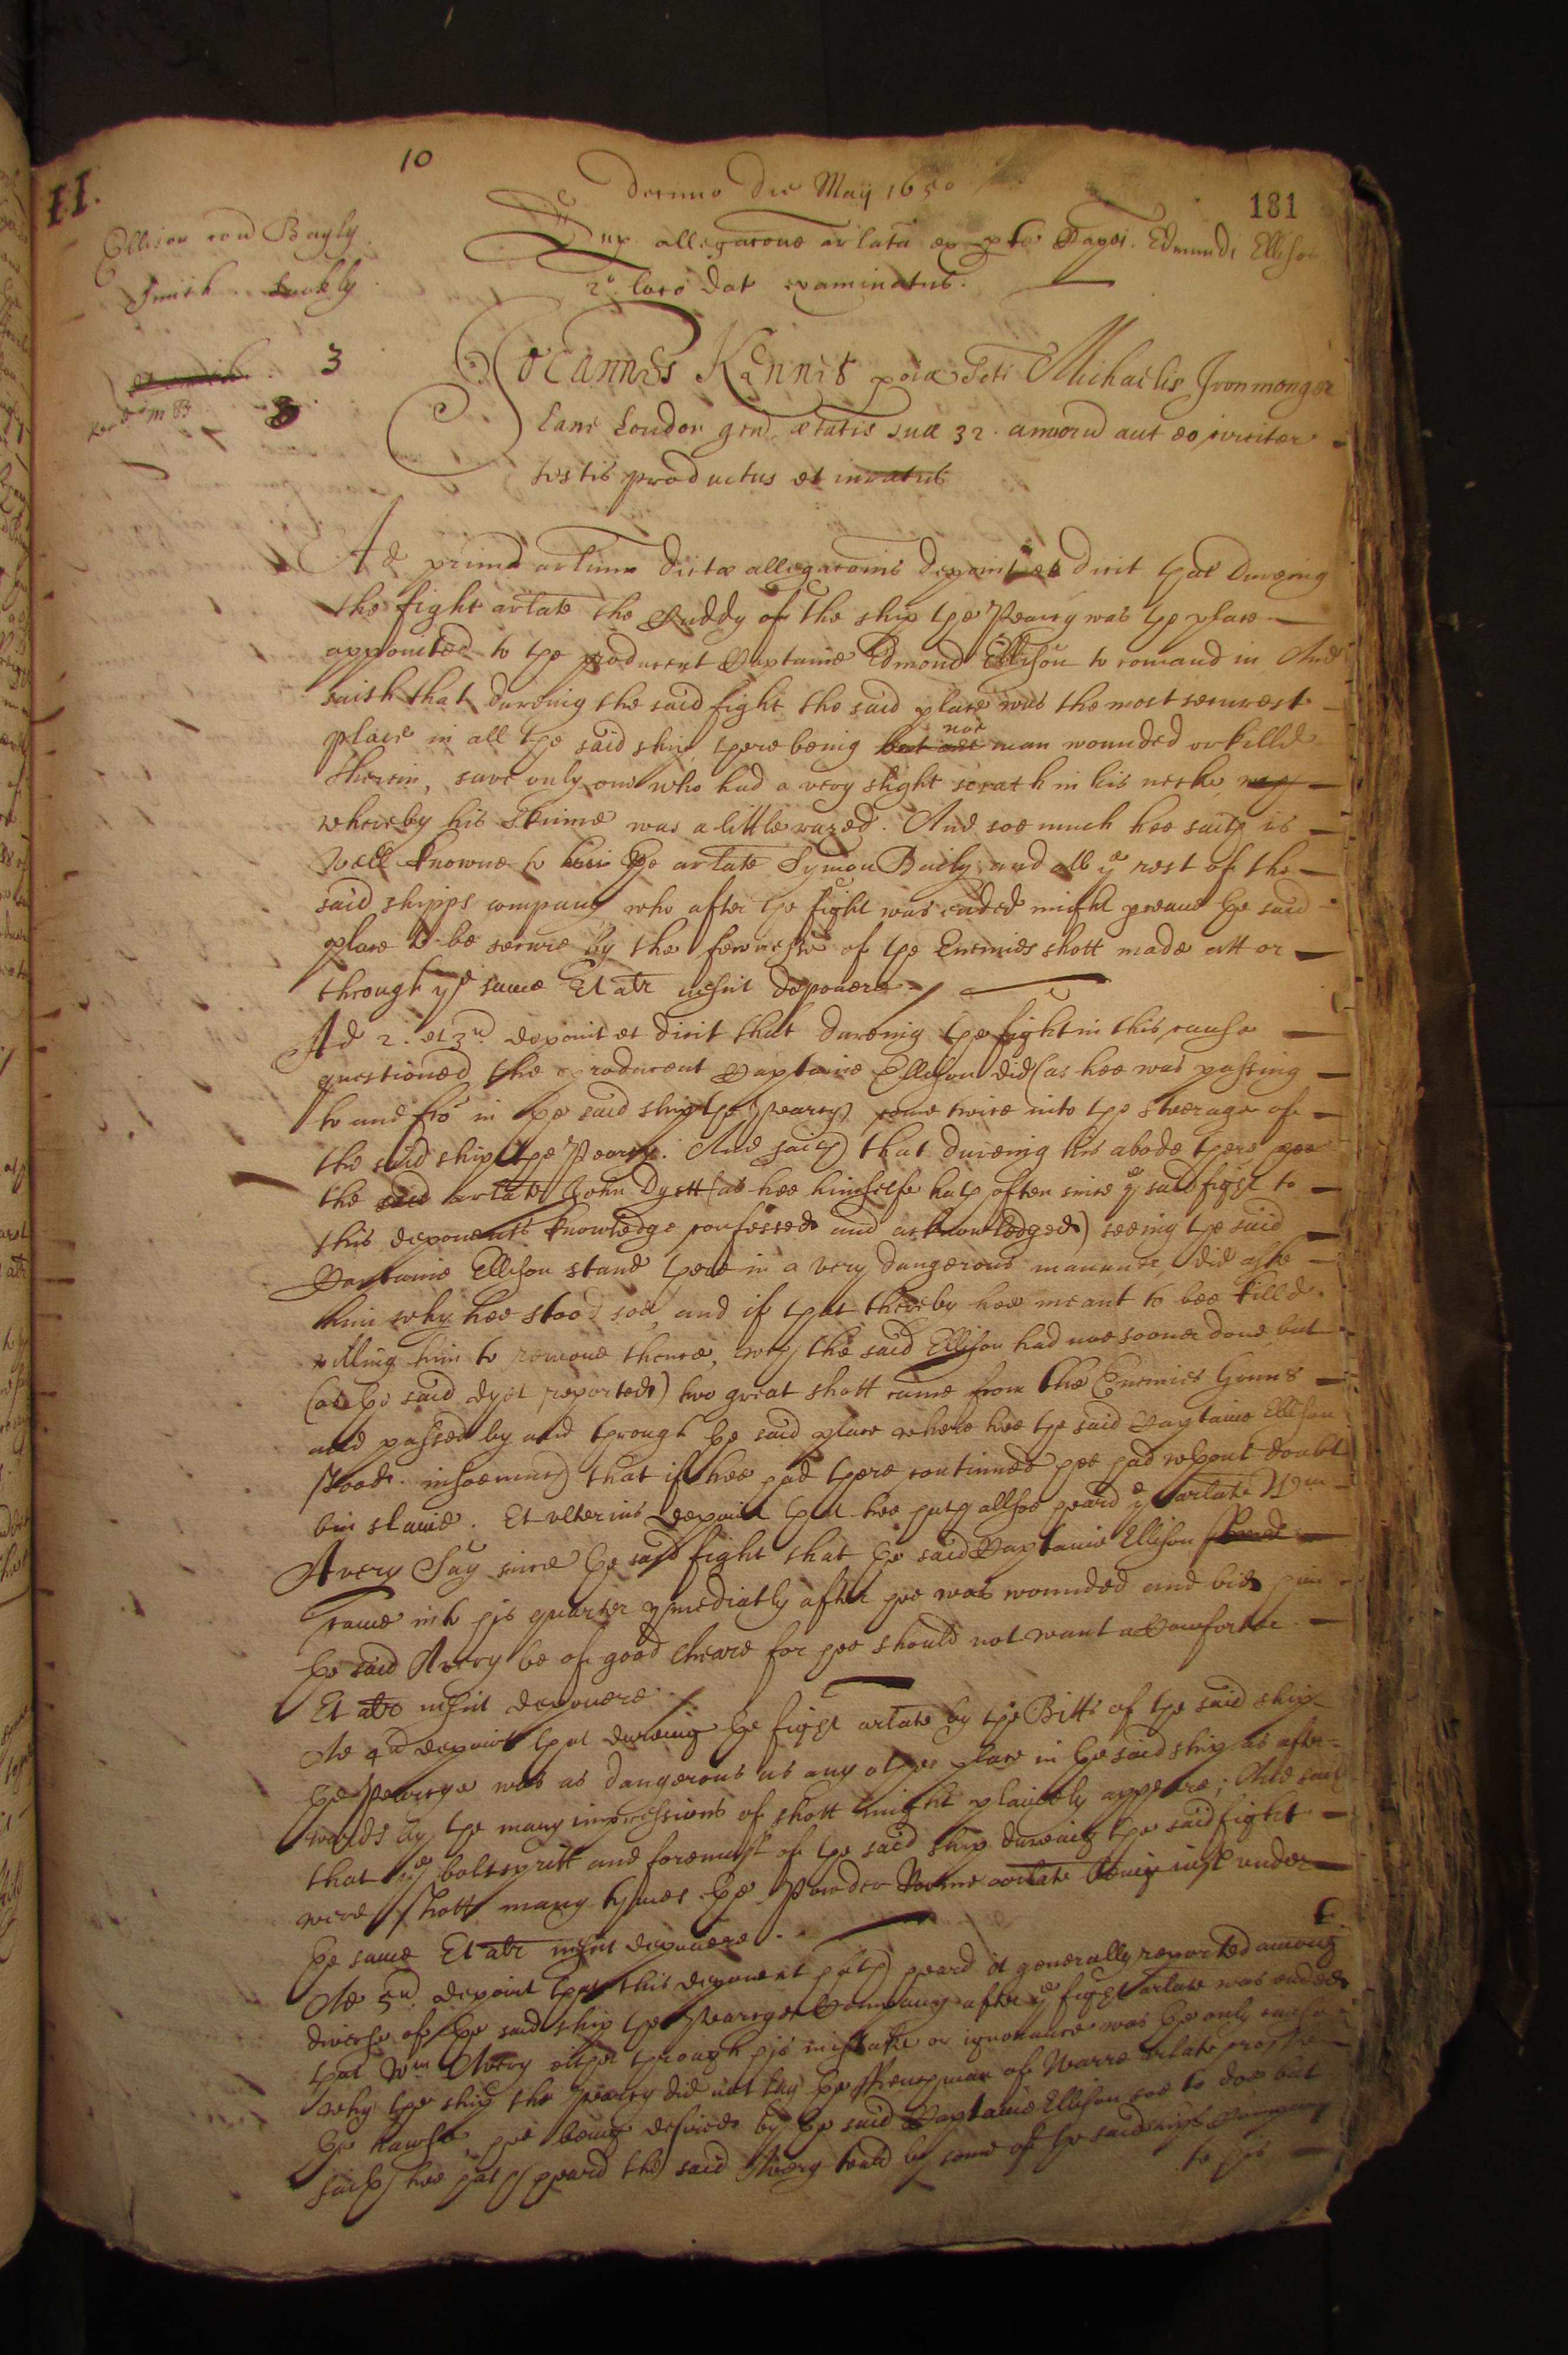 II.
10
181
decimo die Maij 1650
Ellison con Bayly
Smith Suckly
Sup. allegacone arlata ex pte Capt. Edmundi Ellison
2º loco dat examinatus.
3
Johannes Kennis poiæ Scti Michaelis Ironmonger
8
Lane London gen ætatis suæ 32 annorũ aut eo circiter
testis productus et iuratus
Ad primũ arlum dictæ allegaconis deponit et dicit that dureing
the fight arlate the Cuddy of the ship the Pearsy was the place
appointed to the producent Captaine Edmond Ellison to comand in And
saith that dureing the said fight the said place was the most securest
place in all the said ship, there being but one noe man wounded or killd
therein, save only one who had a very slight scratch in his necke,
whereby his skinne was a little razed. And soe much hee saith is
well knowne to the arlate Symon Baily and all ye rest of the
said shipps company who after the fight was ended might perceave the said
place to be secure by the fewnesse of the Enemies shott made att or
through ye same Et alr nescit deponere
Ad 2. et 3ũ deponit et dicit that dureing the fight in this cause
questioned the producent Captaine Ellison did (as hee was passing
to and fro in the said ship the Pearsy) come twice into the steerage of
the said ship the Pearsy. And saith that dureing his abode there
the said arlate John Dyett (as hee himselfe hath often since ye said fight to
this deponents knowledge confessed and acknowledged) seeing the said
Captaine Ellison stand there in a very dangerous mannner, did aske
him why hee stood soe, and if that thereby hee meant to bee killd.
willing him to remove thence, wch the said Ellison had noe sooner done but
(as the said dyet reported) two great shott came from the Enemies Gunns
and passed by and through the said place where hee the said Captaine Ellison
stood. insoemuch that if hee had there continued hee had wthout doubt
bin slaine. Et ulterius deponit that hee hath allsoe heard ye arlate Wm
Avery say since the said fight that the said Captaine Ellison
came into his quarter ymediatly after hee was wounded and bid him
the said Avery be of good cheare for hee should not want a Comforter.
Et alr nescit deponere
Ad 4ũ deponit that dureing the fight arlate by the Bitts of the said ship
the Pearsye was as dangerous as any other place in the said ship as after=
wards by the many impressions of shott might plainely appeare; And saith
that ye boltspritt and foremast of the said ship dureing the said fight
were shott many tymes the Powder Roome arlate being just under
the same Et alr nescit deponere.
Ad 5ũ. deponit that this deponent hath heard it generally reported among
diverse of the said ship the Pearsyes Company after ye fight arlate was ended
that Wm Avery either through his mistake or ignorance was the only cause
why the ship the Pearsy did not lay the ffrenchman of Warre arlate crosse
the hawse, hee being desired by the said Captaine Ellison soe to doe but
saith hee hath heard the said Avery tould by some of the said ships Company
to his